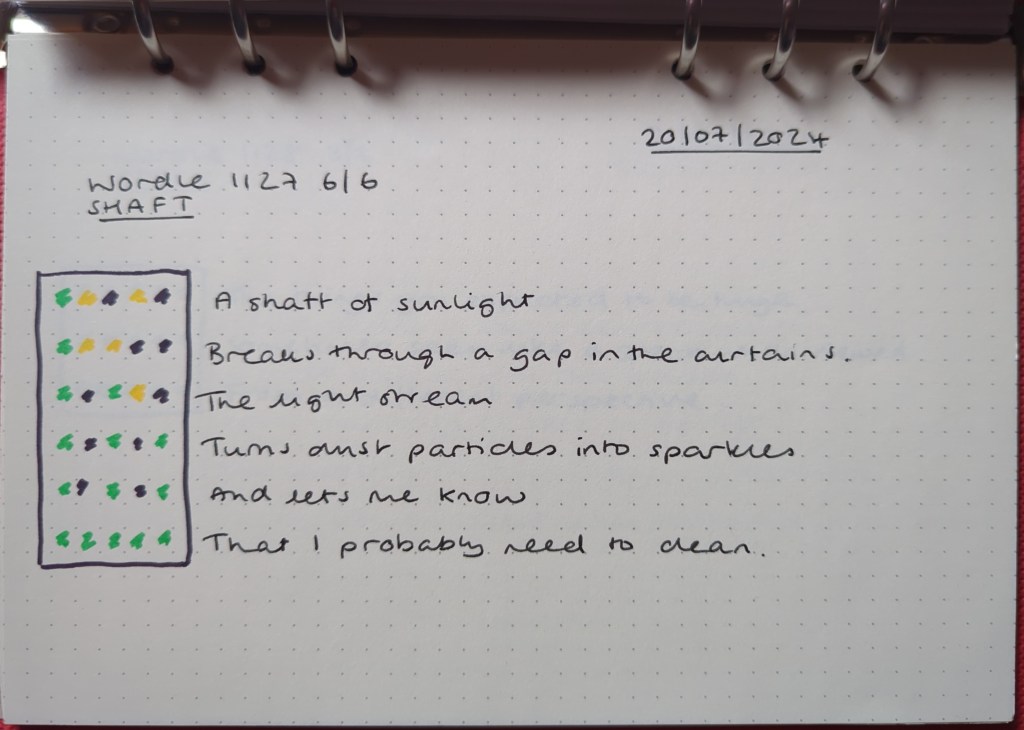 20/07/2024
Wordle 1127 6/6
SHAFT
A shaft of sunlight
Breaks through a gap in the curtains.
The light stream
Turns dust particles into sparkles
And lets me know
That I probably need to clean.